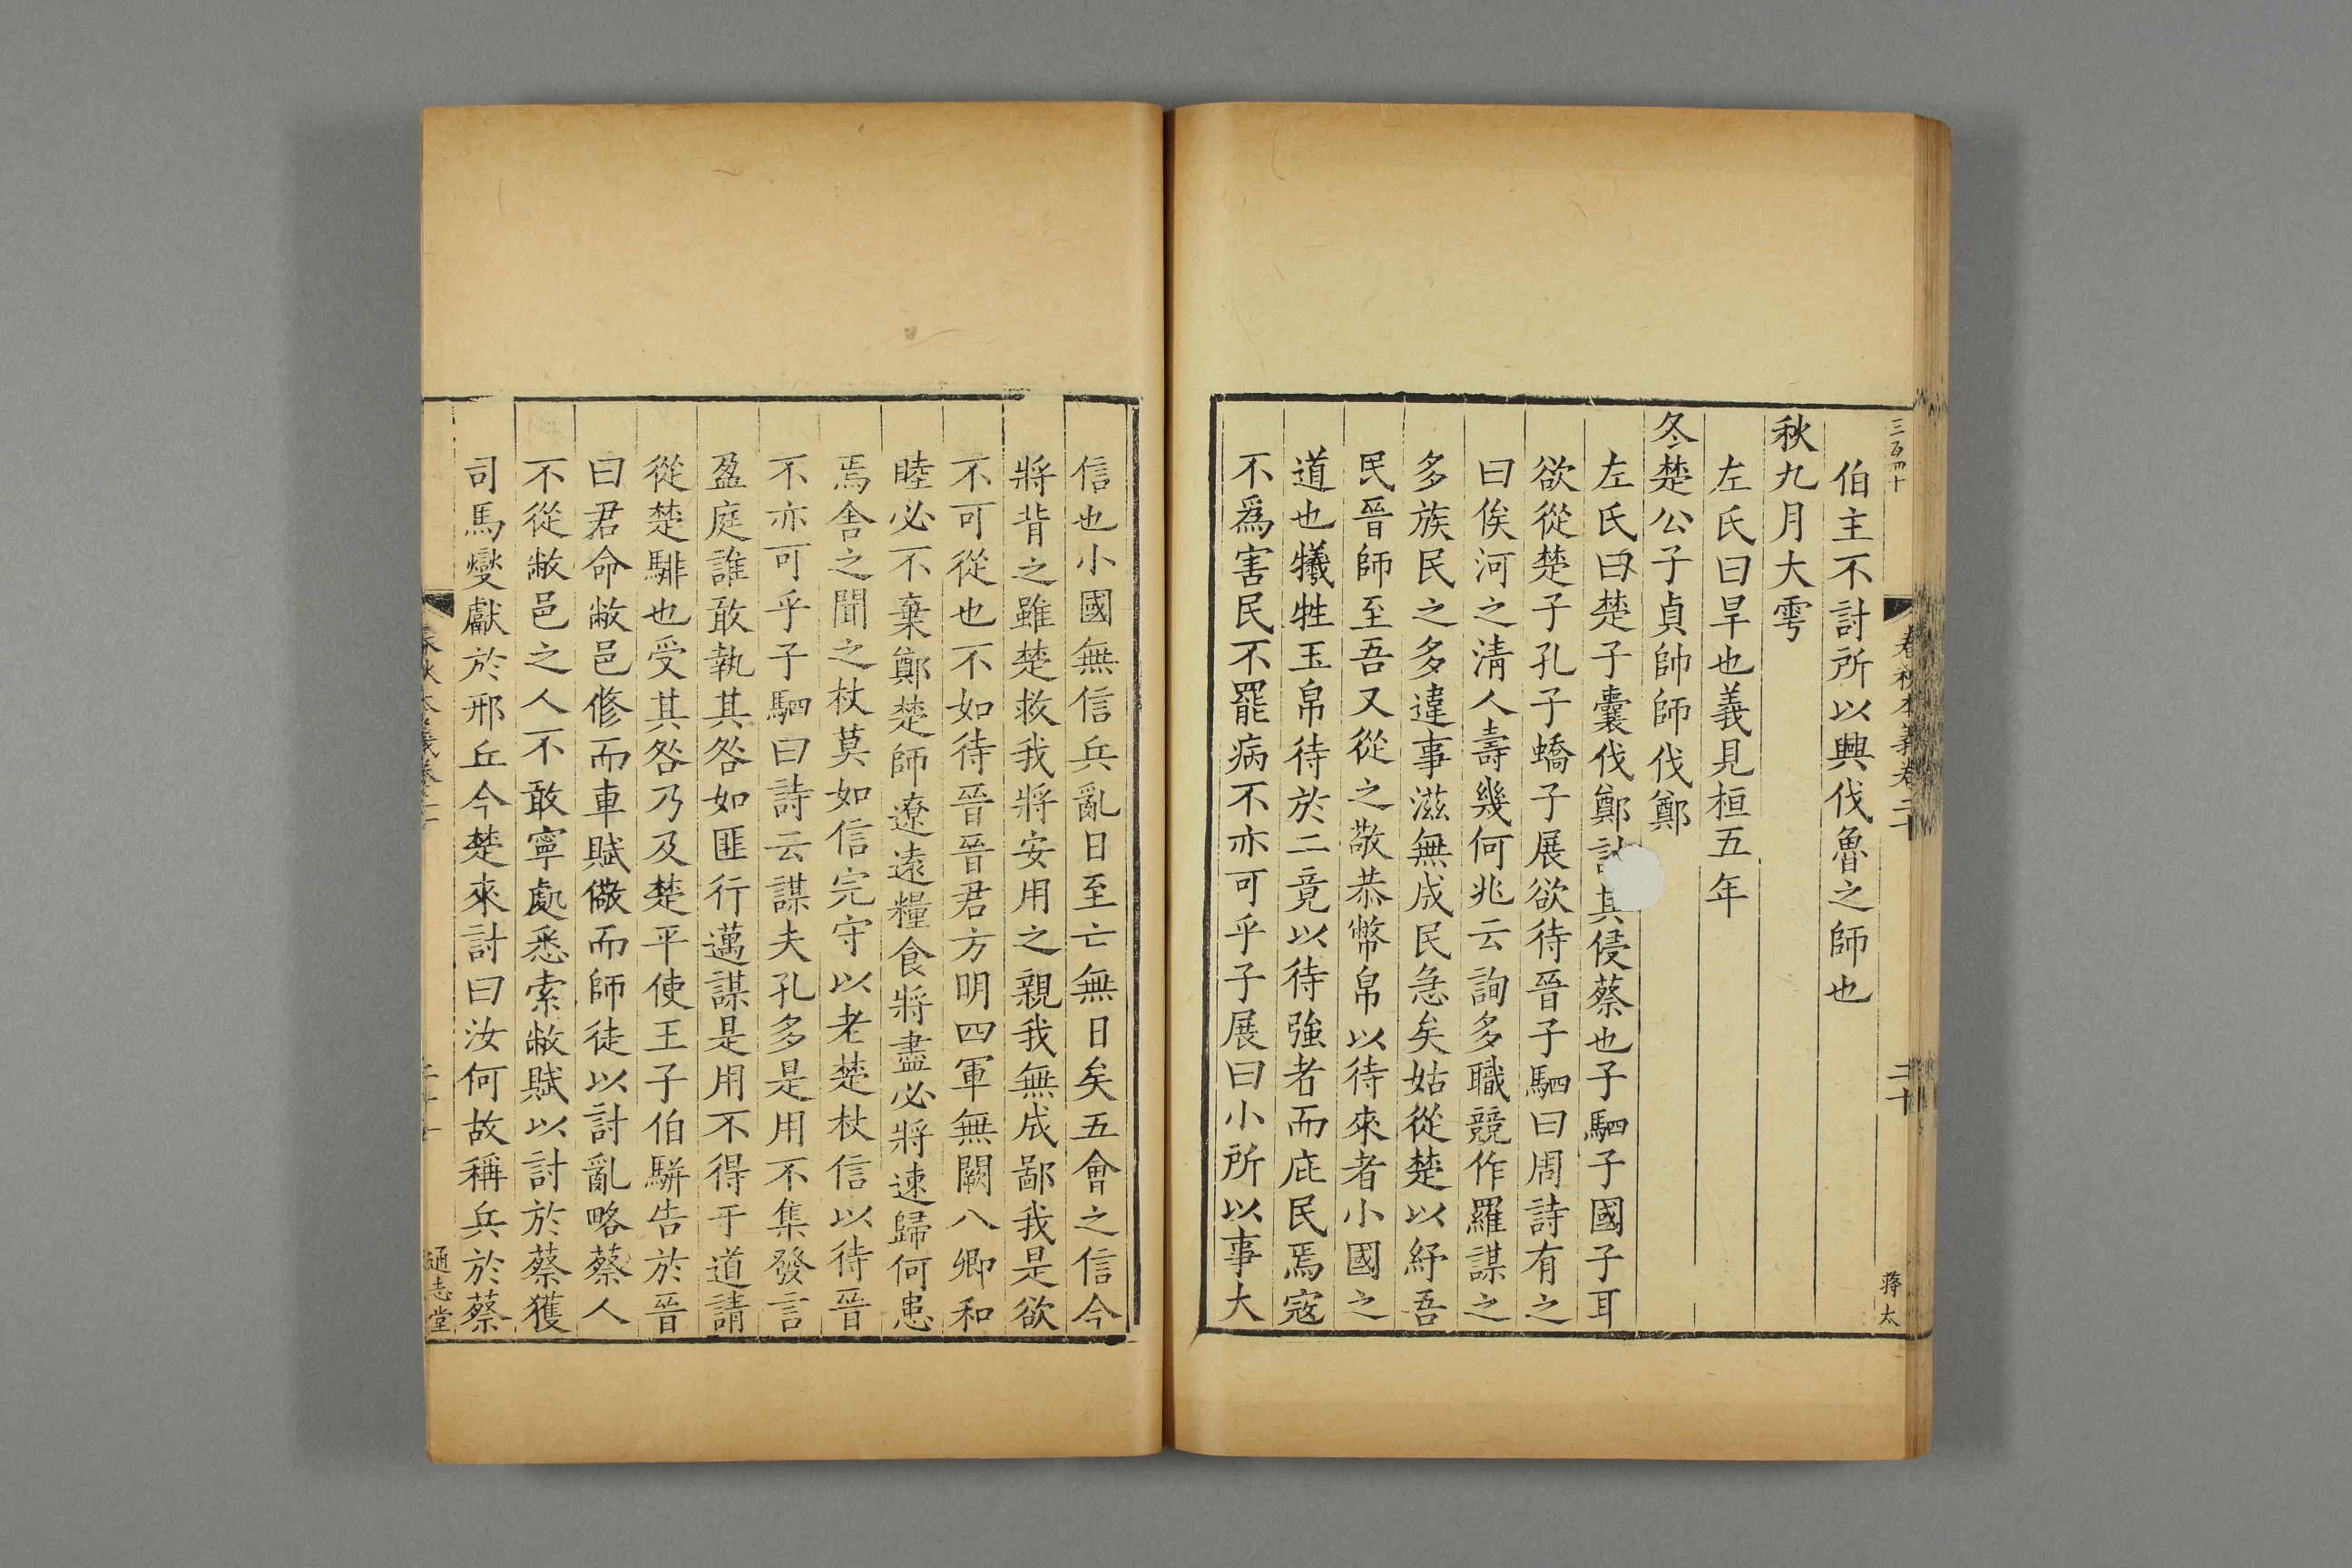 三百四十
春秋本義卷二十
二十
蒋太
伯主不討所以興伐魯之師也
秋九月大雩
左氏曰旱也義見桓五年
冬楚公子貞帥師伐鄭
左氏曰楚子囊伐鄭討其侵蔡也子駟子國子耳
欲從楚子孔子蟜子展欲待晉子駟曰周詩有之
曰俟河之清人壽幾何兆云詢多職競作羅謀之
多族民之多違事滋無成民急矣姑從楚以紓吾
民晉師至吾又從之敬恭幣帛以待來者小國之
道也犧牲玉帛待於二竟以待強者而庇民焉寇
不爲害民不罷病不亦可乎子展曰小所以事大
信也小國無信兵亂日至亡無日矣五會之信今
將背之雖楚救我將安用之親我無成鄙我是欲
不可從也不如待晉晉君方明四軍無闕八卿和
睦必不棄鄭楚師遼遠糧食將盡必將速歸何患
焉舍之聞之杖莫如信完守以老楚杖信以待晉
不亦可乎子駟曰詩云謀夫孔多是用不集發言
盈庭誰敢執其咎如匪行邁謀是用不得于道請
從楚騑也受其咎乃及楚平使王子伯駢告於晉
曰君命敝邑修而車賦儆而師徒以討亂略蔡人
不從敝邑之人不敢寧處悉索敝賦以討於蔡獲
司馬燮獻於邢丘今楚來討曰汝何故稱兵於蔡
通志堂